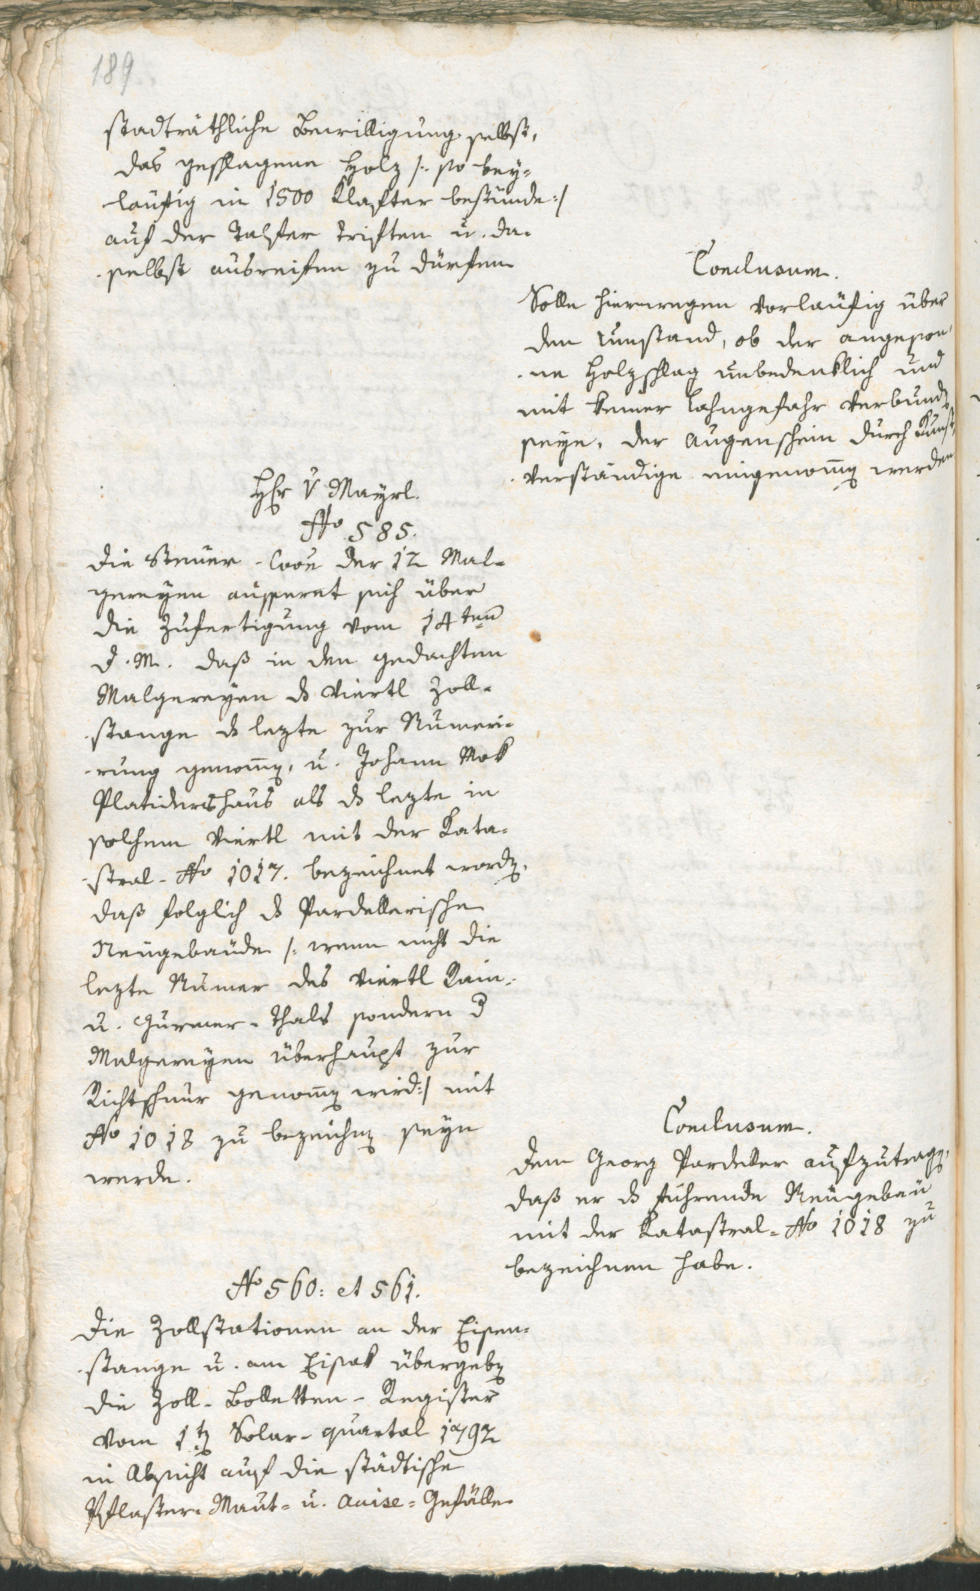 189
stadträthliche Bewilligung selbst,
das geschlagene Holz /: so bey-
läufig in 1500 Klafter bestünde :/
auf der Talfer triften u. da-
selbst ausreifen zu dürfen
Conclusum.
Solle hierwegen vorläufig über
den Umstand, ob der angeson-
ne Holzschlag unbedenklich und
mit keiner Lahngefahr verbundn
seye, der Augenschein durch Kunst-
verständige eingenomn werden
Hr v Mayrl.
No 585.
Die Steuer-Coôn der 12 Mal-
gereyen äussert sich über
die Zufertigung vom 14ten
d. M. daß in den gedachten
Malgereyen ds Viertl Zoll-
stange ds lezte zur Numeri-
rung genomn, u. Johann Mok
Platidershaus als ds lezte in
solchem Viertl mit der Kata-
stral-No 1017. bezeichnet wordn,
daß folglich ds Pardellerische
Neugebäude /: wenn nicht die
lezte Numer des Viertl Rain-
u. -Thals sondern d
Malgereyen überhaupt zur
Richtschnur genomn wird :/ mit
No 1018 zu bezeichnn seyn
werde.
Conclusum.
Dem Georg Pardeller aufzutragn,
daß er ds führende Neugebäu
mit der Katastral-No 1018 zu
bezeichnen habe.
No 560: et 561.
Die Zollstationen an der Eisen-
stange u. am Eisak übergebn
die Zoll-Bolletten-Register
vom 1tn Solar-quartal 1792
in Absicht auf die städtische
Pflaster-Maut- u. Accise-Gefälle